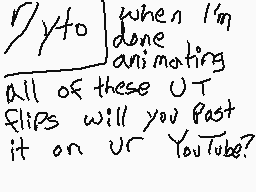 7/yto
when I'm
done
animating
all of these UT
flips will you Post
it on ur YouTube?